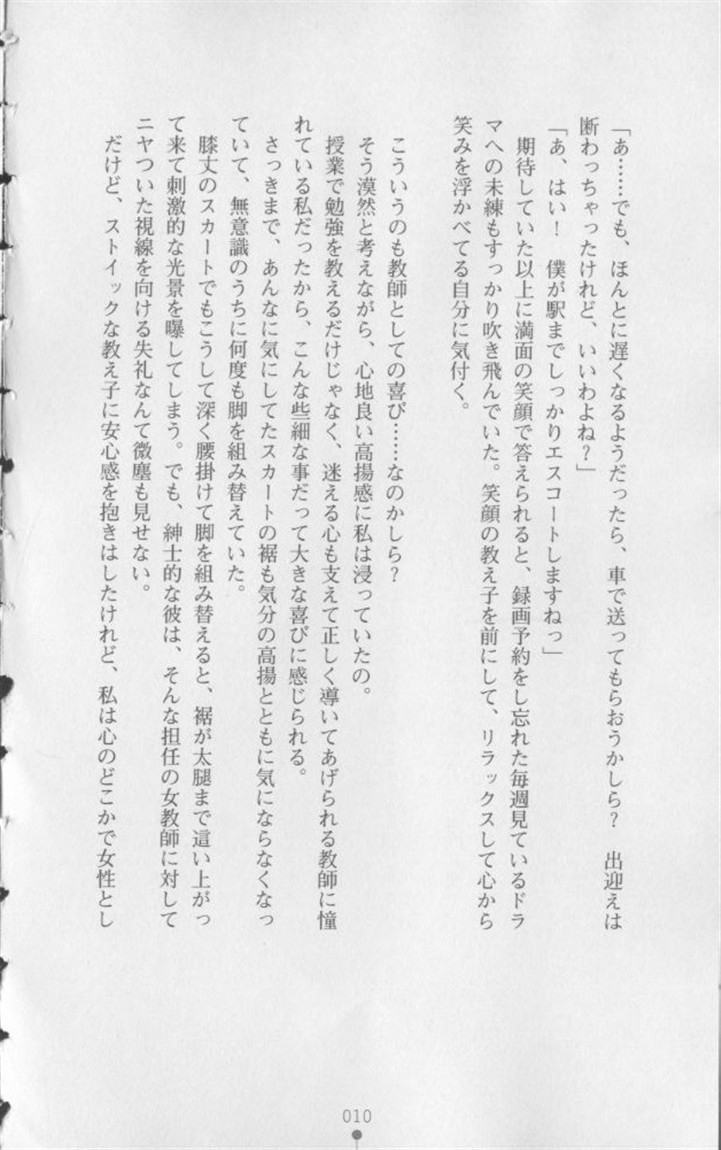 「あ……でも、ほんとに遅くなるようだったら、車で送ってもらおうかしら？　出迎えは
断わっちゃったけれど、いいわよね？」
「あ、はい！　僕が駅までしっかりエスコートしますねっ」
期待していた以上に満面の笑顔で答えられると、録画予約をし忘れた毎週見ているドラ
マへの未練もすっかり吹き飛んでいた。笑顔の教え子を前にして、リラックスして心から
笑みを浮かべてる自分に気付く。
こういうのも教師としての喜び……なのかしら？
そう漠然と考えながら、心地良い高揚感に私は浸っていたの。
授業で勉強を教えるだけじゃなく、迷える心も支えて正しく導いてあげられる教師に憧
れている私だったから、こんな些細な事だって大きな喜びに感じられる。
さっきまで、あんなに気にしてたスカートの裾も気分の高揚とともに気にならなくなっ
ていて、無意識のうちに何度も脚を組み替えていた。
膝丈のスカートでもこうして深く腰掛けて脚を組み替えると、裾が太腿まで這い上がっ
て来て刺激的な光景を曝してしまう。でも、紳士的な彼は、そんな担任の女教師に対して
ニヤついた視線を向ける失礼なんて微塵も見せない。
だけど、ストイックな教え子に安心感を抱きはしたけれど、私は心のどこかで女性とし
010